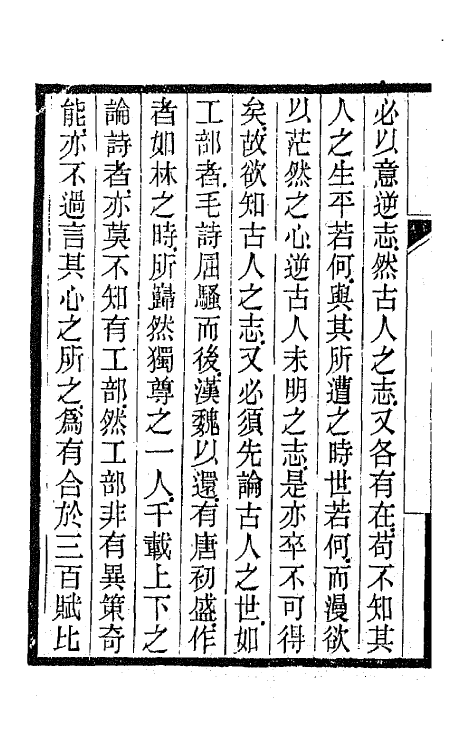 必以意逆志然古人之志又各有在苟不知其
人之生平若何與其所遭之時世若何而漫欲
以茫然之心逆古人未明之志是亦卒不可得
矣故欲知古人之志又必須先論古人之世如
工部者毛詩屈騷而後漢魏以還有唐初盛作
者如林之時所巋然獨尊之一人千載上下之
論詩者亦莫不知有工部然工部非有異策奇
能亦不過言其心之所之爲有合於三百賦比